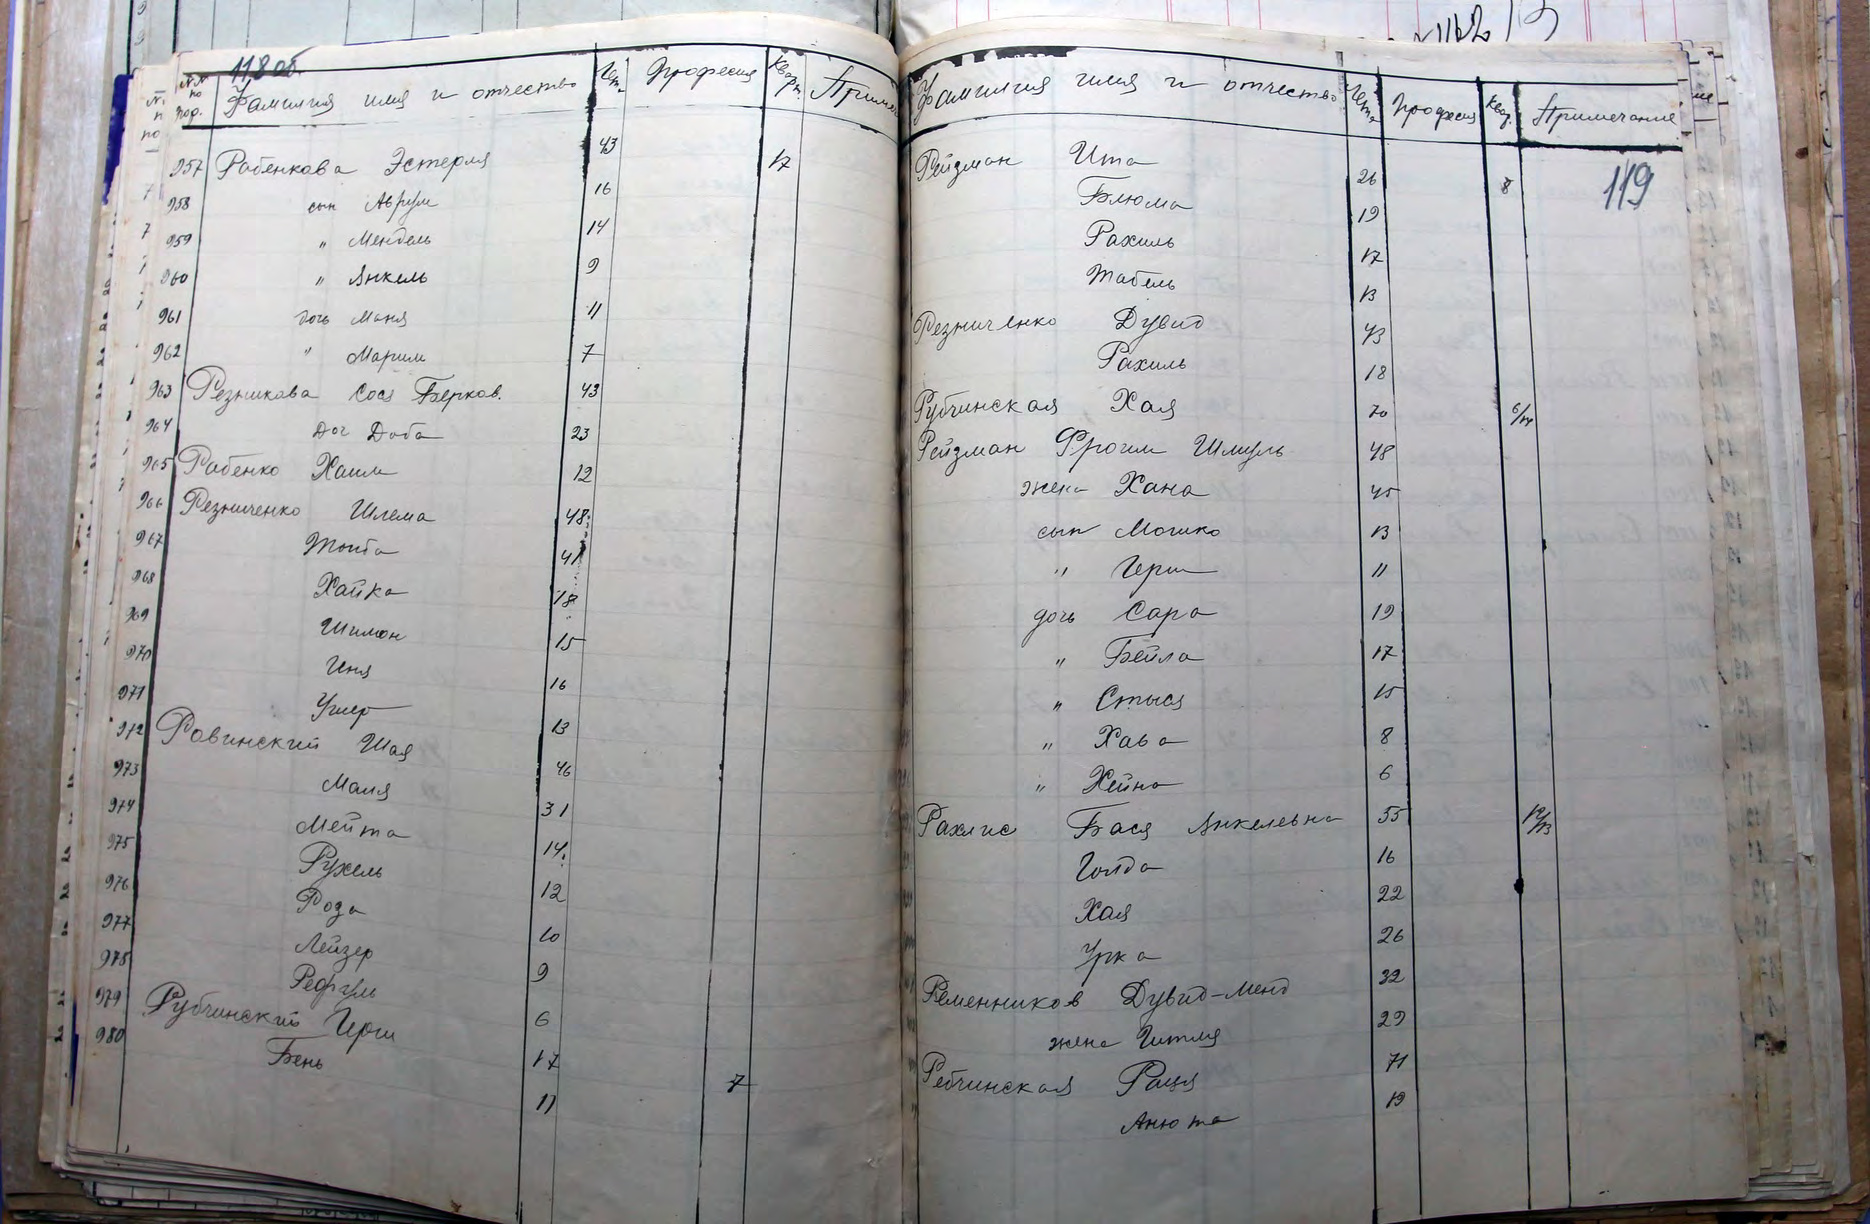 118 об.
№№ по пор. Фамилия имя и отчество Лет Професия Кварт. Примеч
957 Рабенкова Эстерля 43 17
958 сын Аврум 16
959 " Мендель 14
960 " Янкель 9
961 дочь Маня 11
962 " Марим 7
963 Резникова Сося Берков. 43
964 Доч Доба 23
965 Рабенко Хаим 12
966 Резниченко Шлема 48
967 Тойба 41
968 Хайка 18
969 Шимон 15
970 Иня 16
971 Ушер 13
972 Ровинский Шая 46
973 Маля 31
974 Мейта 14
975 Рухель 12
976 Роза 10
977 Лейзер 9
978 Рефуль 6
979 Рубчинский Герш 17 7
980 Бень 11
Фамилия имя и отчество Лета Професия Квар. Примечание
119
Рейзман Ита 26 8
Блюма 19
Рахиль 17
Табель 13
Резниченко Дувид 43
Рахиль 18
Рубчинская Хая 70
Рейзман Фроим Шмуль 48
жена Хана 45
сын Мошко 13
" Герш 11
дочь Сара 19
" Бейла 17
" Стыся 15
" Хава 8
" Хейна 6
Рахлис Бася Янкелевна 55
Голда 16
Хая 22
Урка 26
Ременников Дувид-Менд 32
жена Гитля 29
Ребчинская Раця 71
Анюта 19